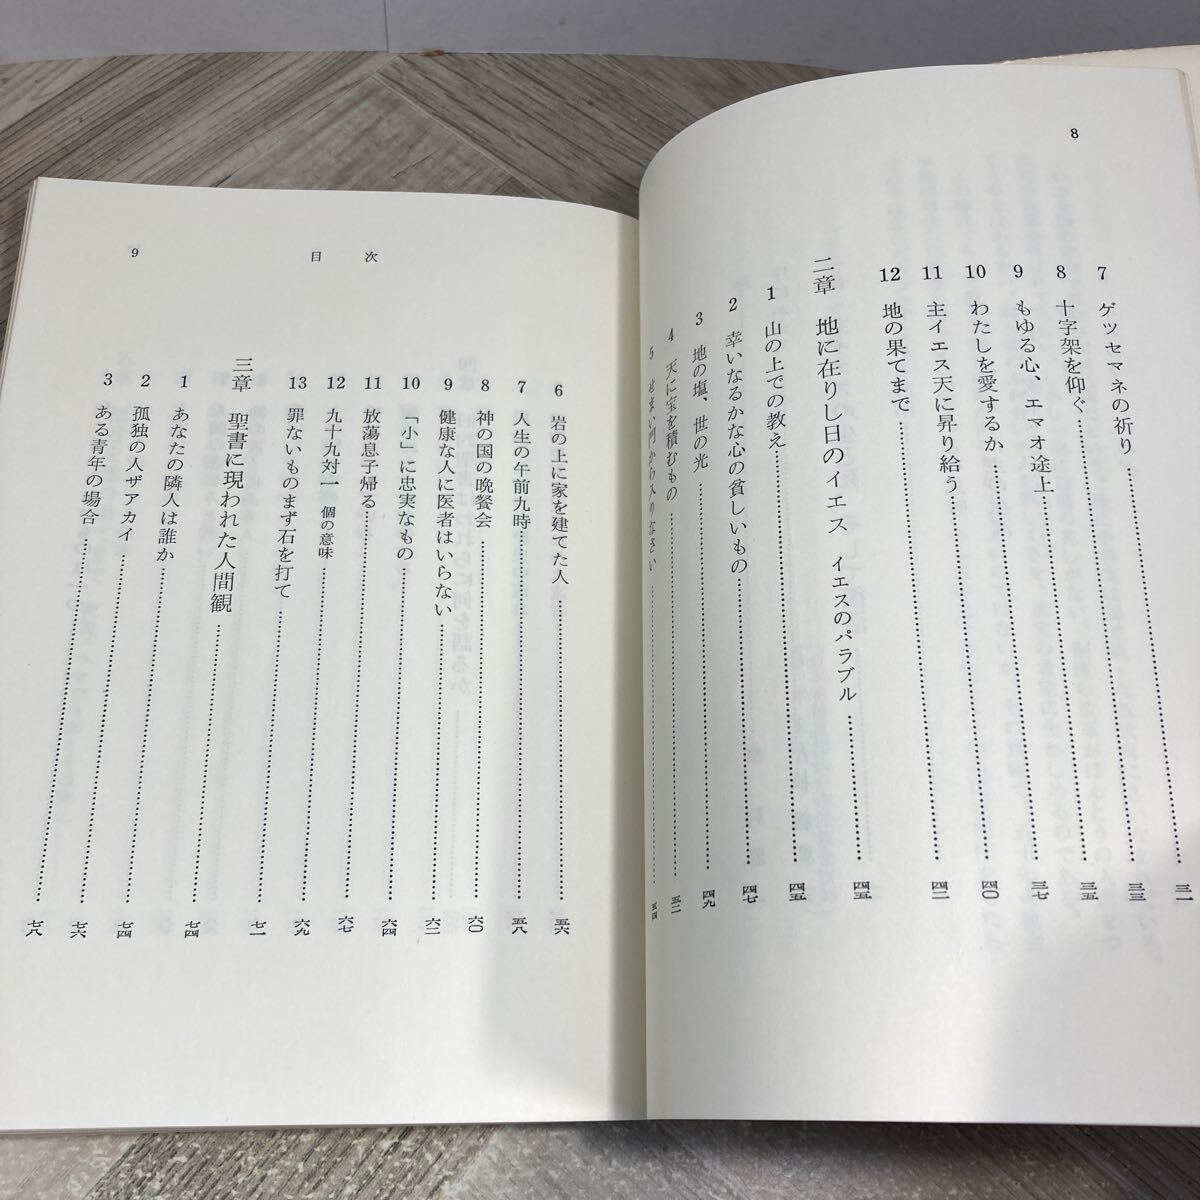 8
7 ゲツセマネの祈り…三一
8 十字架を仰ぐ…三三
9 もゆる心、エマオ途上…三五
10 わたしを愛するか…三七
11 主イエス天に昇り給う…四〇
12 地の果てまで…四二
二章 地に在りし日のイエス イエスのパラブル…四五
1 山の上での教え…四五
2 幸いなるかな心の貧しいもの…四七
3 地の塩、世の光…四九
4 天に宝を積むもの…五二
5 せまい門から入りなさい…五四
目次 9
6 岩の上に家を建てた人…五六
7 人生の午前九時…五八
8 神の国の晩餐会…六〇
9 健康な人に医者はいらない…六二
10 「小」に忠実なもの…六四
11 放蕩息子帰る…六七
12 九十九対一 個の意味…六九
13 罪ないものまず石を打て…七一
三章 聖書に現われた人間観…七四
1 あなたの隣人は誰か…七四
2 孤独の人ザアカイ…七六
3 ある青年の場合…七八